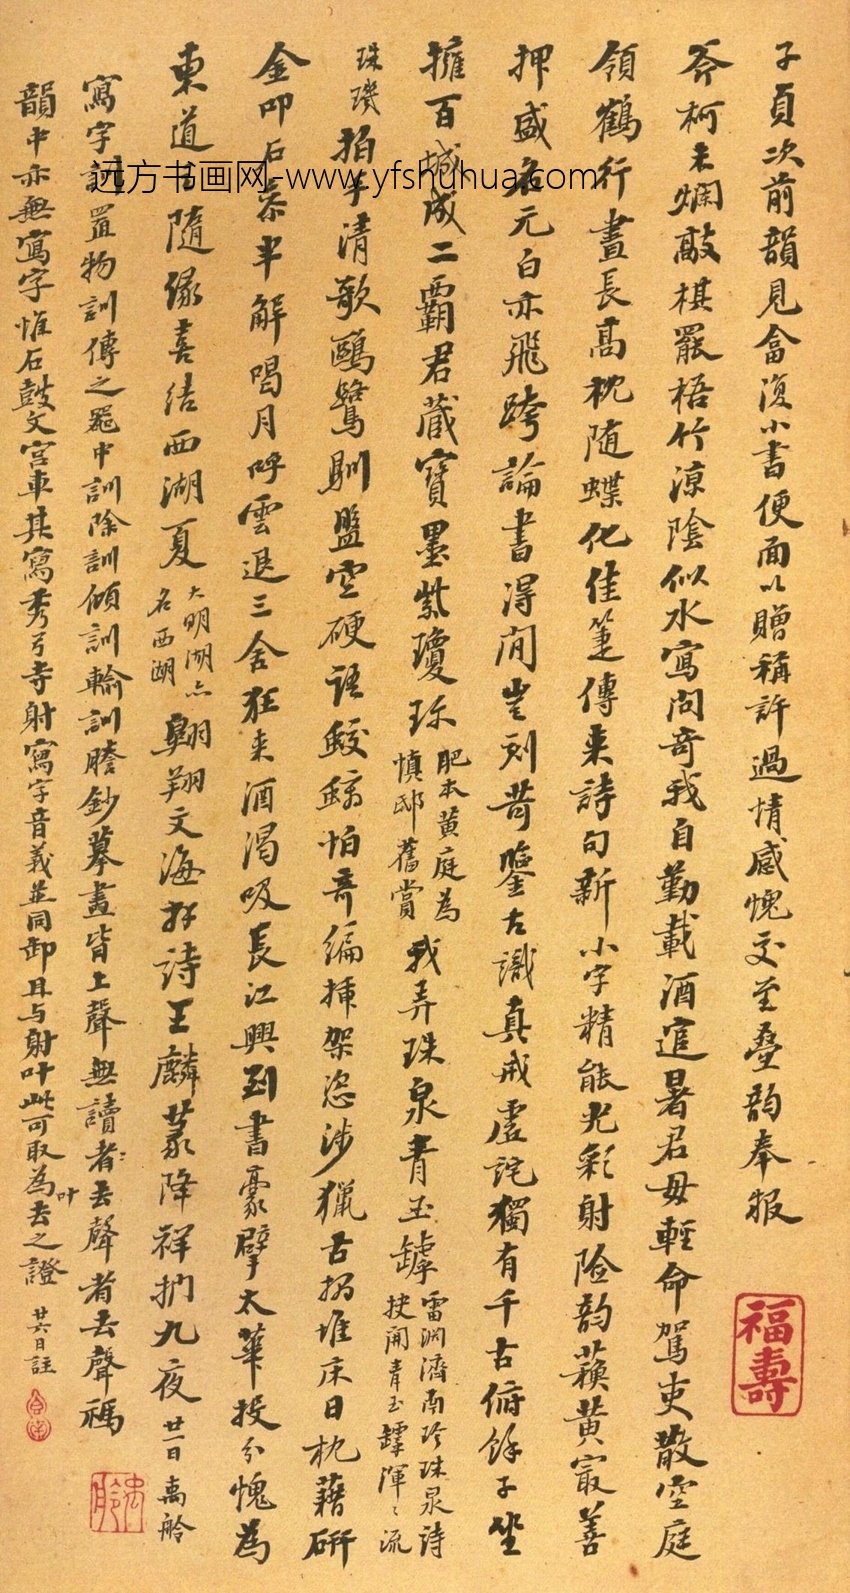 子貞次前韻見畣復小書便面以贈稱許過情感愧交至疊韵奉報
斧柯未爛敲棋罷梧竹涼陰似水寫問奇我自勤載酒追暑君毋輕命駕吏散空庭
領鶴行晝長高枕随蝶化佳箑傳來詩句新小字精能光彩射險韵蘇黃寂善
押盛名元白亦飛跨論書得閒豈刻苛鑒古識真戒虛詫獨有千古俯餘子坐
擁百城成二霸君藏寶墨紫瓊珎肥本黃庭為慎邸舊賞我弄珠泉青玉罅雷淵濟南珍珠泉詩抉開青玉罅渾渾流
珠璣拍手清歌鷗鷺馴盤空硬語蛟鯨怕奇編揷架恣涉獵古搨堆床日枕藉硏
金叩石崇半解喝月呼雲退三舍狂來酒渴吸長江興到書豪擘太華投分愧為
東道主隨緣喜結西湖夏大明湖亦名西湖翺翔文海求詩王麟篆降祥捫九夜廿一日禼舲
寫字訓置物訓傳之器中訓除訓傾訓輸訓謄鈔摹畫皆上聲無讀者去聲者去聲禡
韻中亦無寫字惟石鼓文宮車其寫秀弓寺射寫字音義並同卸且与射叶此可取為叶去之證廿六日註
福壽
远方书画网-www.yfshuhua.com